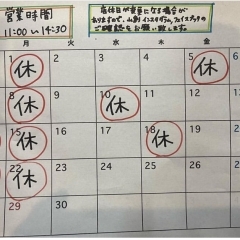 営業時間
11:00〜14:30
店休日が変更になる場合が
ありますので、インスタグラム、フェイスブックの
ご確認をお願い致します。
月 火 水 木 金
1 休 2 3 4 5 休 6
8 休 9 10 休 11 12
15 休 16 17 18 休 19
22 休 23 24 25 26
29 30